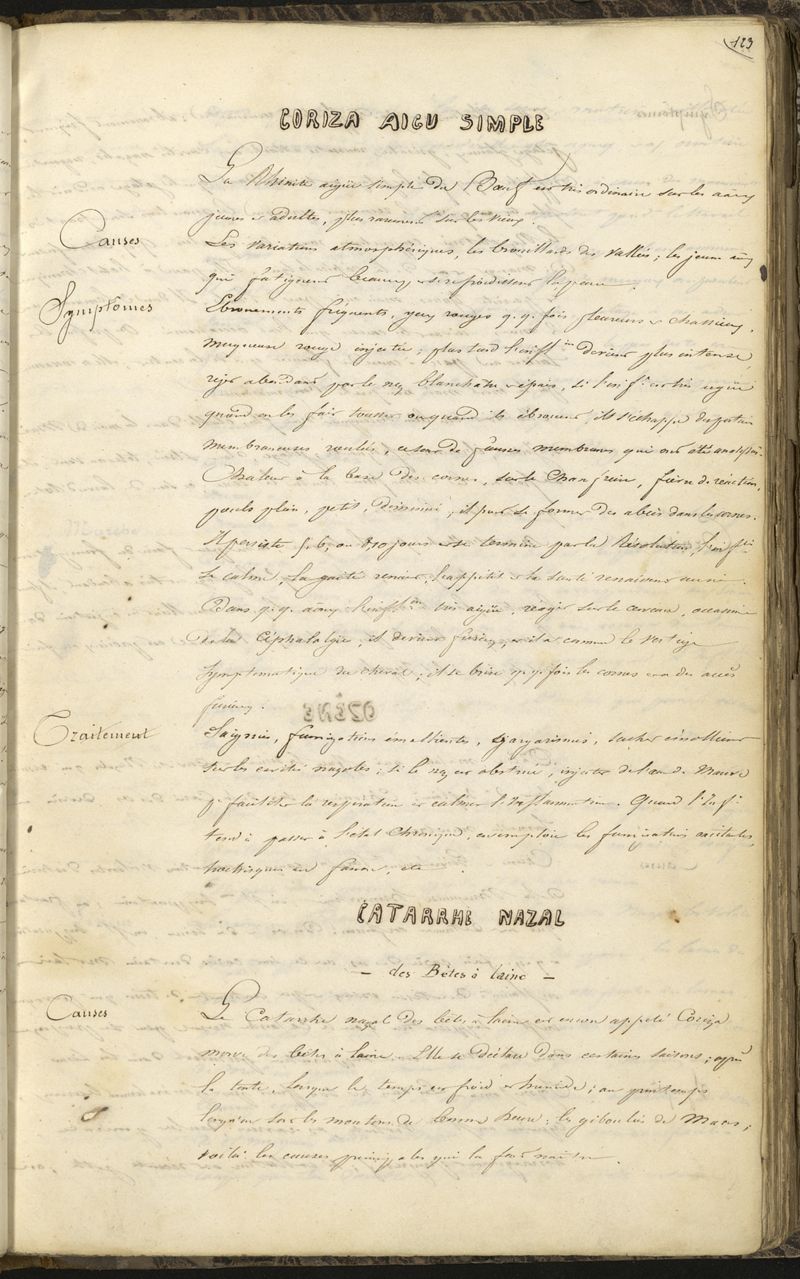 123
CORIZA AIGU SIMPLE
La Rhinite aigüe simple du Bœuf est très ordinaire sur les anx
jeunes et adultes, plus rarement sur les vieux.
Causes
Les variations atmosphériques, les brouillards des vallées; les jeunes anx
qui fatiguent beaucoup et se refroidissent la peau.
Symptômes
Ebrouements fréquents, yeux rouges q.q. fois pleureurs et chassieux,
muqueuse rouge injectée; plus tard l'infltion devient plus intense,
rejet abondant par le nez blanchâtre et épais, si l'inf. est très aigüe
quand on les fait tousser ou quand ils ébrouent, il s'échappe des portions
membraneuses roulées, ce sont de fausses membranes qui ont été analysées.
Chaleur à la base des cornes, sur le chanfrein, fièvre de réaction,
pouls plein, petit, il peut se former des abcès dans les cornes.
Il persiste 5, 6, ou 8, 10 jours et se termine par la Résolution, l'infltion
se calme, la gaîté renait, l'appétit et la santé renaissent aussi.
Dans q.q. anx l'infltion très aigüe, réagit sur le cerveau, occasionne
de la Céphalalgie, il devient furieux, et il a comme le vertige
symptomatique du cheval; il se brise q.q. fois les cornes et a des accès
furieux.
Traitement
Saignée, fumigations émollientes, gargarismes, sachet émollient
sur les cavités nazales; si le nez est obstrué, injecter de l'eau de Mauve
p. faciliter la respiration et calmer l'Inflammation. Quand l'Inf.
tend à passer à l'état chronique, on emploie les fumigations excitantes,
trochisques au fanon, etc.
CATARRHE NAZAL
— des Bêtes à laine —
Causes
Le Catarrhe nazal des bêtes à laine est encore appelé Coriza
morve des bêtes à laine. Elle se déclare dans certaines saisons; après
la tonte, lorsque le temps est froid et humide; au printemps
lorqu'on sort les moutons de bonne heure; les giboulées de Mars;
voilà les causes principales qui la font naître.